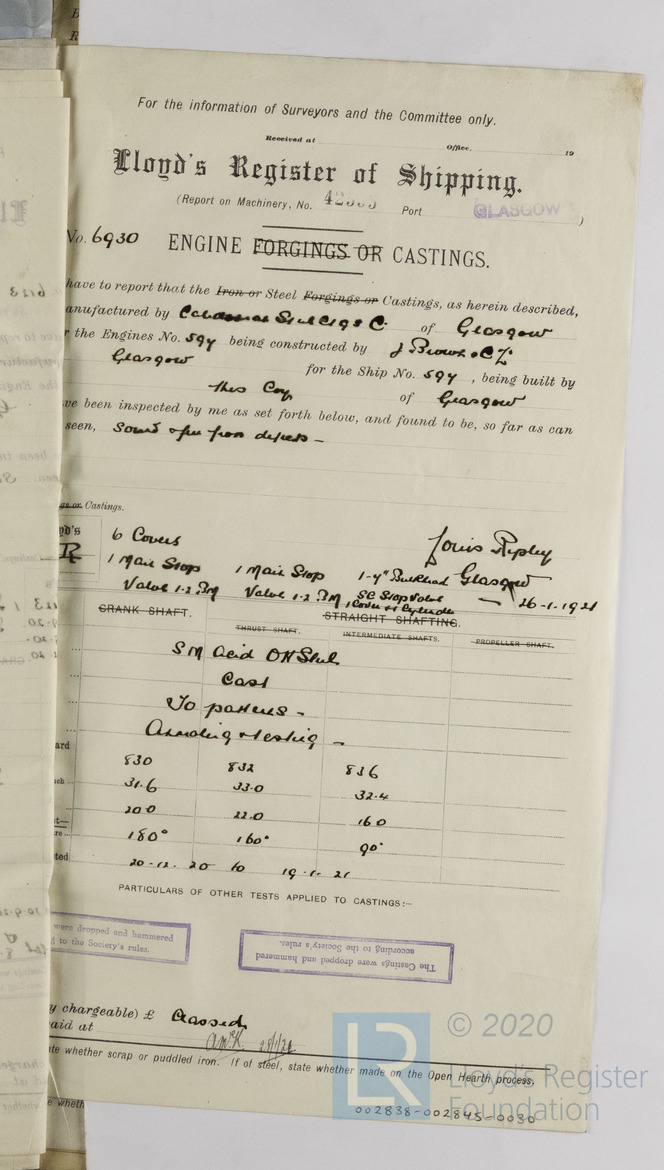 For the information of Surveyors and the Committee only.
Received at Office. 19
Lloyd's Register of Shipping.
(Report on Machinery, No. Port GLASGOW )
No. 6930 ENGINE FORGINGS OR CASTINGS.
have to report that the Iron or Steel Forgings or Castings, as herein described,
anufactured by of Glasgow
r the Engines No. 594 being constructed by J Brown & Co
Glasgow for the Ship No. 594, being built by
this Coy of Glasgow
ve been inspected by me as set forth below, and found to be, so far as can
seen, Sound & free from defects –
gs or Castings.
yd's 6 Covers Louis Ripley
LR 1 Main Stop 1 Main Stop 1-4" Bulkhead Glasgow
Valve 1-2 BM Valve 1-2 BM SE Stop Valve — 26-1-1921
1 Cover & Cylinder
CRANK SHAFT. STRAIGHT SHAFTING.
THRUST SHAFT. INTERMEDIATE SHAFTS. PROPELLER SHAFT.
S M Acid OH Steel
Cast
To patterns –
Annealing & testing –
ard 830 832 836
ch 31.6 33.0 32.4
20.0 22.0 16.0
re 180° 160° 90°
ted 20-12-20 to 19-1-21
PARTICULARS OF OTHER TESTS APPLIED TO CASTINGS:—
were dropped and hammered
d to the Society's rules.
The Castings were dropped and hammered
according to the Society's rules.
y chargeable) £
aid at
28/1/21
te whether scrap or puddled iron. If of steel, state whether made on the Open Hearth process.
e wheth
002838-002845-0030
LR
© 2020
Lloyd's Register
Foundation